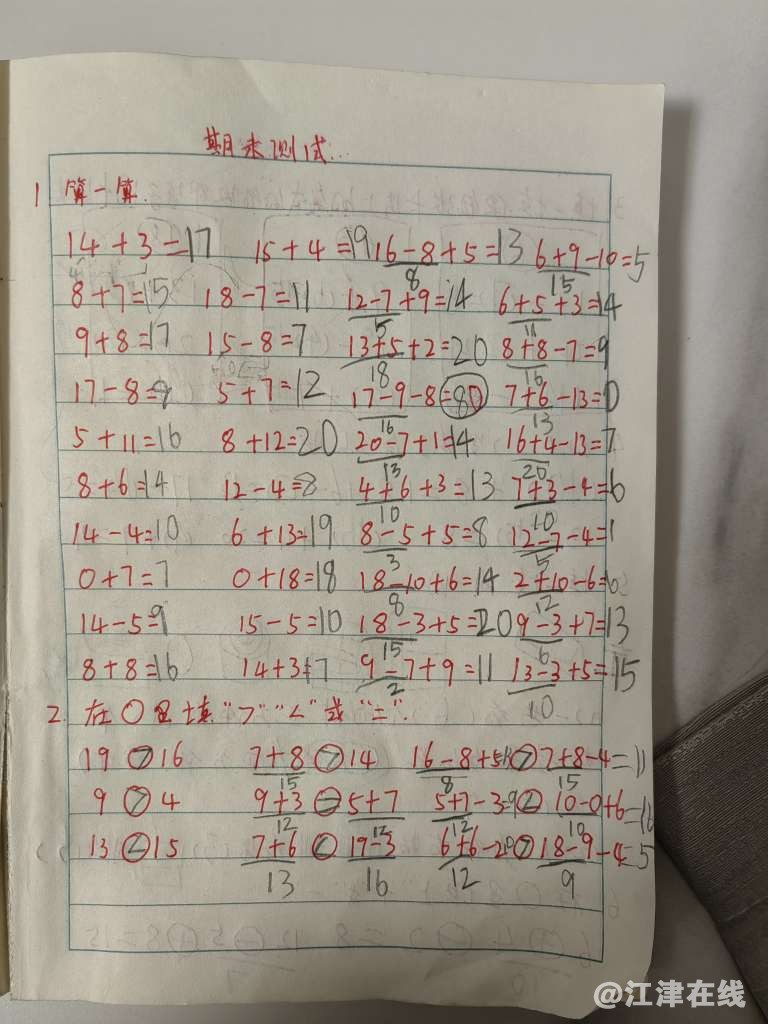 期末测试...
1 算一算.
14+3=17 15+4=19 16-8+5=13 6+9-10=5
8 15
8+7=15 18-7=11 12-7+9=14 6+5+3=14
5 11
9+8=17 15-8=7 13+5+2=20 8+8-7=9
18 16
17-8=9 5+7=12 17-9-8=80 7+6-13=0
16 13
5+11=16 8+12=20 20-7+1=14 16+4-13=7
13 20
8+6=14 12-4=8 4+6+3=13 7+3-4=6
10 10
14-4=10 6+13=19 8-5+5=8 12-7-4=1
3 5
0+7=7 0+18=18 18-10+6=14 2+10-6=6
8 12
14-5=9 15-5=10 18-3+5=20 9-3+7=13
15 6
8+8=16 14+3=17 9-7+9=11 13-3+5=15
2 10
2 在○里填“>”“<”或“=”.
19>16 7+8>14 16-8+5>7+8-4=11
15 8 15
9>4 9+3=5+7 5+7-3=9<10-0+6=16
12 12 12 10
13<15 7+6<19-3 6+6-2>18-9-4=5
13 16 12 9
@江津在线